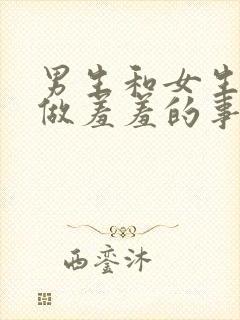 男生和女生
做羞羞的事
西銮沐